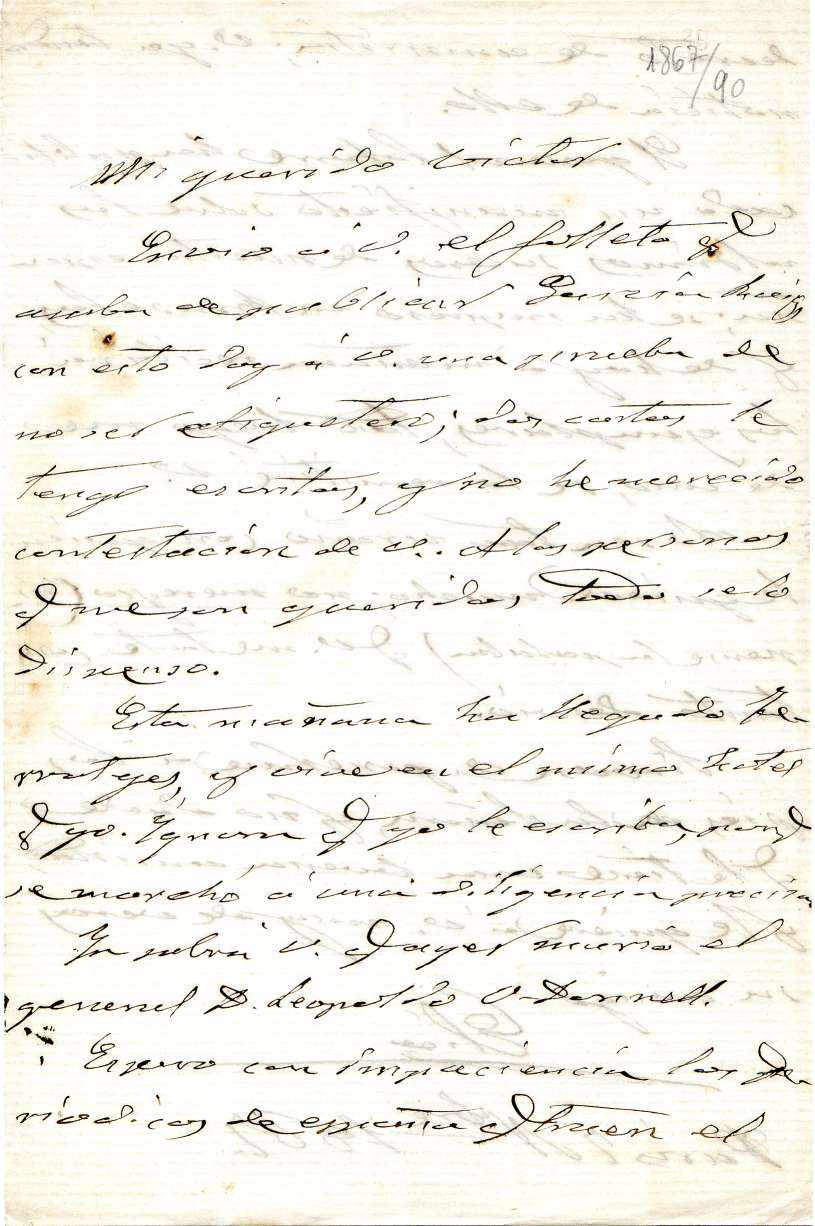 1867/90
Mi querido Victor
Envio á V. el folleto q
acaba de publicar Garzía Ruiz,
con esto doy á V. una prueba de
no ser etiquetero; dos cartas le
tengo escritas, y no he merecido
contestación de V. A las personas
q me son queridas todo se lo
dispenso.
Esta mañana ha llegado
y vive en el mismo hotel
q yo. Ignora q yo le escriba, porq
se marchó á una diligencia precisa
Ya sabrá V. q ayer murió el
general D. Leopoldo O-Donnell.
Espero con impaciencia los pe-
riodicos de españa q traen el